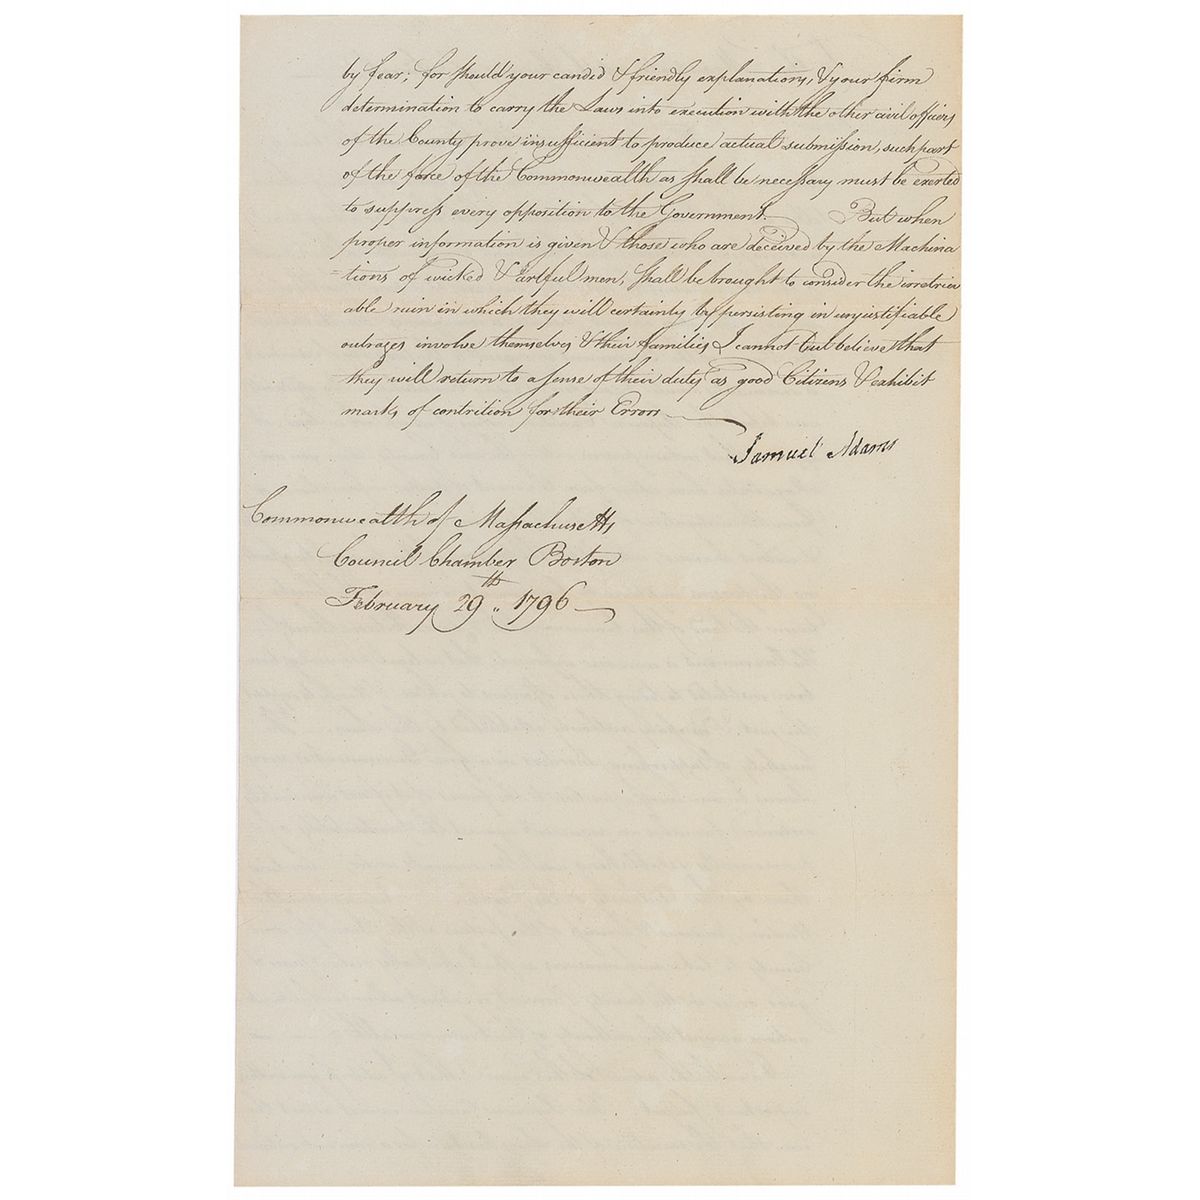 by fear; for should your candid & friendly explanations, & your firm
determination to carry the Laws into execution with the other civil officers
of the County prove insufficient to produce actual submission, such part
of the force of the Commonwealth as shall be necessary must be exerted
to suppress every opposition to the Government. But when
proper information is given & those who are deceived by the Machina
=tions of wicked & artful men, shall be brought to consider the irretriev
able ruin in which they will certainly by persisting in unjustifiable
outrages involve themselves & their families, I cannot but believe that
they will return to a sense of their duty as good Citizens & exhibit
marks of contrition for their Errors
Samuel Adams
Commonwealth of Massachusetts
Council Chamber Boston
February 29th 1796